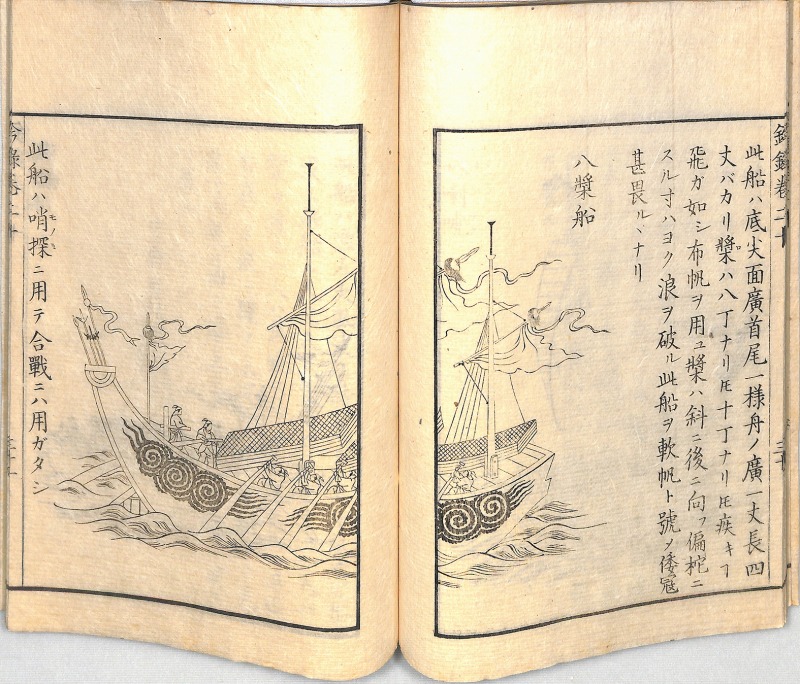 此船ハ底尖面廣首尾一様舟ノ廣一丈長四
丈バカリ槳ハ八丁ナリ𪜈十丁ナリ𪜈疾キヿ
飛ガ如シ布帆ヲ用ユ槳ハ斜ニ後ニ向フ偏柁ニ
スル寸ハヨク浪ヲ破ル此船ヲ軟帆ト號メ倭寇
甚畏ルヽナリ
八槳船
此船ハ哨探ニ用テ合戰ニハ用ガタシ
モノミ